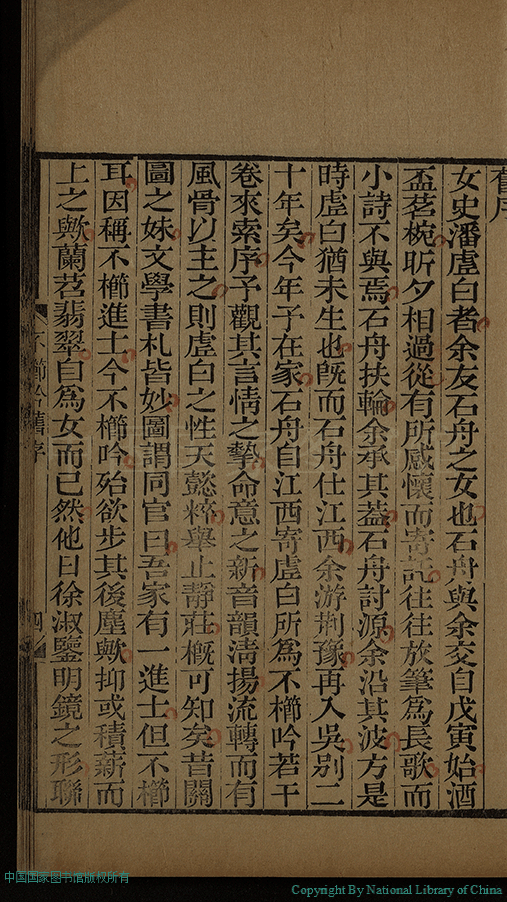 舊序
女史潘虛白者余友石舟之女也石舟與余交自戊寅始酒
盃茗椀昕夕相過從有所感懷而寄託往往放筆爲長歌而
小詩不與焉石舟扶輪余承其蓋石舟討源余沿其波方是
時虛白猶未生也旣而石舟仕江西余游荆豫再入吳別二
十年矣今年予在家石舟自江西寄虛白所爲不櫛吟若干
卷來索序予觀其言情之摯命意之新音韻淸揚流轉而有
風骨以主之則虛白之性天懿粹舉止靜莊槪可知矣昔關
圖之妹文學書札皆妙圖謂同官曰吾家有一進士但不櫛
耳因稱不櫛進士今不櫛吟殆欲步其後塵歟抑或積薪而
上之歟蘭苕翡翠自爲女而已然他日徐淑鑒明鏡之形聯
不櫛吟舊序
四
中国国家图书馆版权所有
Copyright By National Library of China